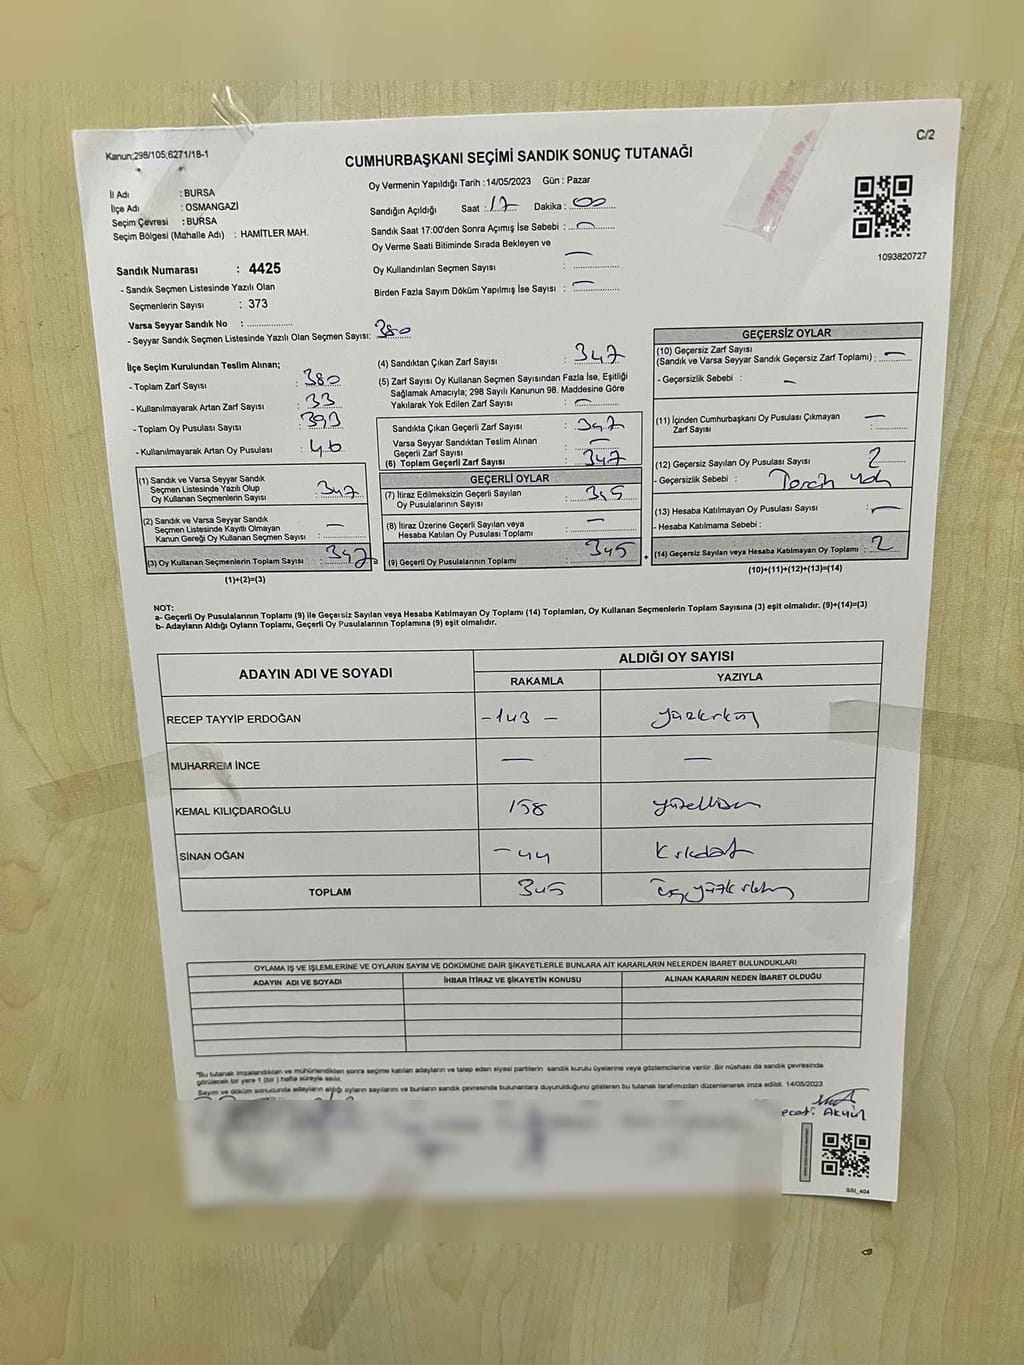 C/2
Kanun;298/105;6271/18-1
CUMHURBAŞKANI SEÇİMİ SANDIK SONUÇ TUTANAĞI
İl Adı : BURSA
İlçe Adı : OSMANGAZİ
Seçim Çevresi : BURSA
Seçim Bölgesi (Mahalle Adı) : HAMİTLER MAH.
Oy Vermenin Yapıldığı Tarih :14/05/2023 Gün : Pazar
Sandığın Açıldığı Saat : 17 Dakika : 00
Sandık Saat 17:00'den Sonra Açımış İse Sebebi : —
Oy Verme Saati Bitiminde Sırada Bekleyen ve
Oy Kullandırılan Seçmen Sayısı : —
Birden Fazla Sayım Döküm Yapılmış İse Sayısı : —
1093820727
Sandık Numarası : 4425
- Sandık Seçmen Listesinde Yazılı Olan
Seçmenlerin Sayısı : 373
Varsa Seyyar Sandık No :
- Seyyar Sandık Seçmen Listesinde Yazılı Olan Seçmen Sayısı: 380
İlçe Seçim Kurulundan Teslim Alınan;
- Toplam Zarf Sayısı : 380
- Kullanılmayarak Artan Zarf Sayısı : 33
- Toplam Oy Pusulası Sayısı : 393
- Kullanılmayarak Artan Oy Pusulası : 46
(1) Sandık ve Varsa Seyyar Sandık
Seçmen Listesinde Yazılı Olup
Oy Kullanan Seçmenlerin Sayısı : 347
(2) Sandık ve Varsa Seyyar Sandık
Seçmen Listesinde Kayıtlı Olmayan
Kanun Gereği Oy Kullanan Seçmen Sayısı : —
(3) Oy Kullanan Seçmenlerin Toplam Sayısı : 347
(1)+(2)=(3)
(4) Sandıktan Çıkan Zarf Sayısı : 347
(5) Zarf Sayısı Oy Kullanan Seçmen Sayısından Fazla İse, Eşitliği
Sağlamak Amacıyla; 298 Sayılı Kanunun 98. Maddesine Göre
Yakılarak Yok Edilen Zarf Sayısı : —
Sandıkta Çıkan Geçerli Zarf Sayısı : 347
Varsa Seyyar Sandıktan Teslim Alınan
Geçerli Zarf Sayısı : —
(6) Toplam Geçerli Zarf Sayısı : 347
GEÇERLİ OYLAR
(7) İtiraz Edilmeksizin Geçerli Sayılan
Oy Pusulalarının Sayısı : 345
(8) İtiraz Üzerine Geçerli Sayılan veya
Hesaba Katılan Oy Pusulası Toplamı : —
(9) Geçerli Oy Pusulalarının Toplamı : 345
GEÇERSİZ OYLAR
(10) Geçersiz Zarf Sayısı
(Sandık ve Varsa Seyyar Sandık Geçersiz Zarf Toplamı) : —
- Geçersizlik Sebebi : —
(11) İçinden Cumhurbaşkanı Oy Pusulası Çıkmayan
Zarf Sayısı : —
(12) Geçersiz Sayılan Oy Pusulası Sayısı : 2
- Geçersizlik Sebebi :
(13) Hesaba Katılmayan Oy Pusulası Sayısı : —
- Hesaba Katılmama Sebebi :
(14) Geçersiz Sayılan veya Hesaba Katılmayan Oy Toplamı : 2
(10)+(11)+(12)+(13)=(14)
NOT:
a- Geçerli Oy Pusulalarının Toplamı (9) ile Geçersiz Sayılan veya Hesaba Katılmayan Oy Toplamı (14) Toplamları, Oy Kullanan Seçmenlerin Toplam Sayısına (3) eşit olmalıdır. (9)+(14)=(3)
b- Adayların Aldığı Oyların Toplamı, Geçerli Oy Pusulalarının Toplamına (9) eşit olmalıdır.
ADAYIN ADI VE SOYADI
ALDIĞI OY SAYISI
RAKAMLA YAZIYLA
RECEP TAYYİP ERDOĞAN - 143 - yüzkırküç
MUHARREM İNCE — —
KEMAL KILIÇDAROĞLU 158 yüzellisekiz
SİNAN OĞAN - 44 Kırkdört
TOPLAM 345 üçyüzkırkbeş
OYLAMA İŞ VE İŞLEMLERİNE VE OYLARIN SAYIM VE DÖKÜMÜNE DAİR ŞİKAYETLERLE BUNLARA AİT KARARLARIN NELERDEN İBARET BULUNDUKLARI
ADAYIN ADI VE SOYADI İHBAR İTİRAZ VE ŞİKAYETİN KONUSU ALINAN KARARIN NEDEN İBARET OLDUĞU
"Bu tutanak imzalandıktan ve mühürlendikten sonra seçime katılan adayların ve talep eden siyasi partilerin sandık kurulu üyelerine veya gözlemcilerine verilir. Bir nüshası da sandık çevresinde
görülecek bir yere 1 (bir) hafta süreyle asılır.
Sayım ve döküm sonucunda adayların aldığı oyların sayılarını ve bunların sandık çevresinde bulunanlara duyurulduğunu gösteren bu tutanak tarafımızdan düzenlenerek imza edildi. 14/05/2023
ecati AKYÜN
SSI_404